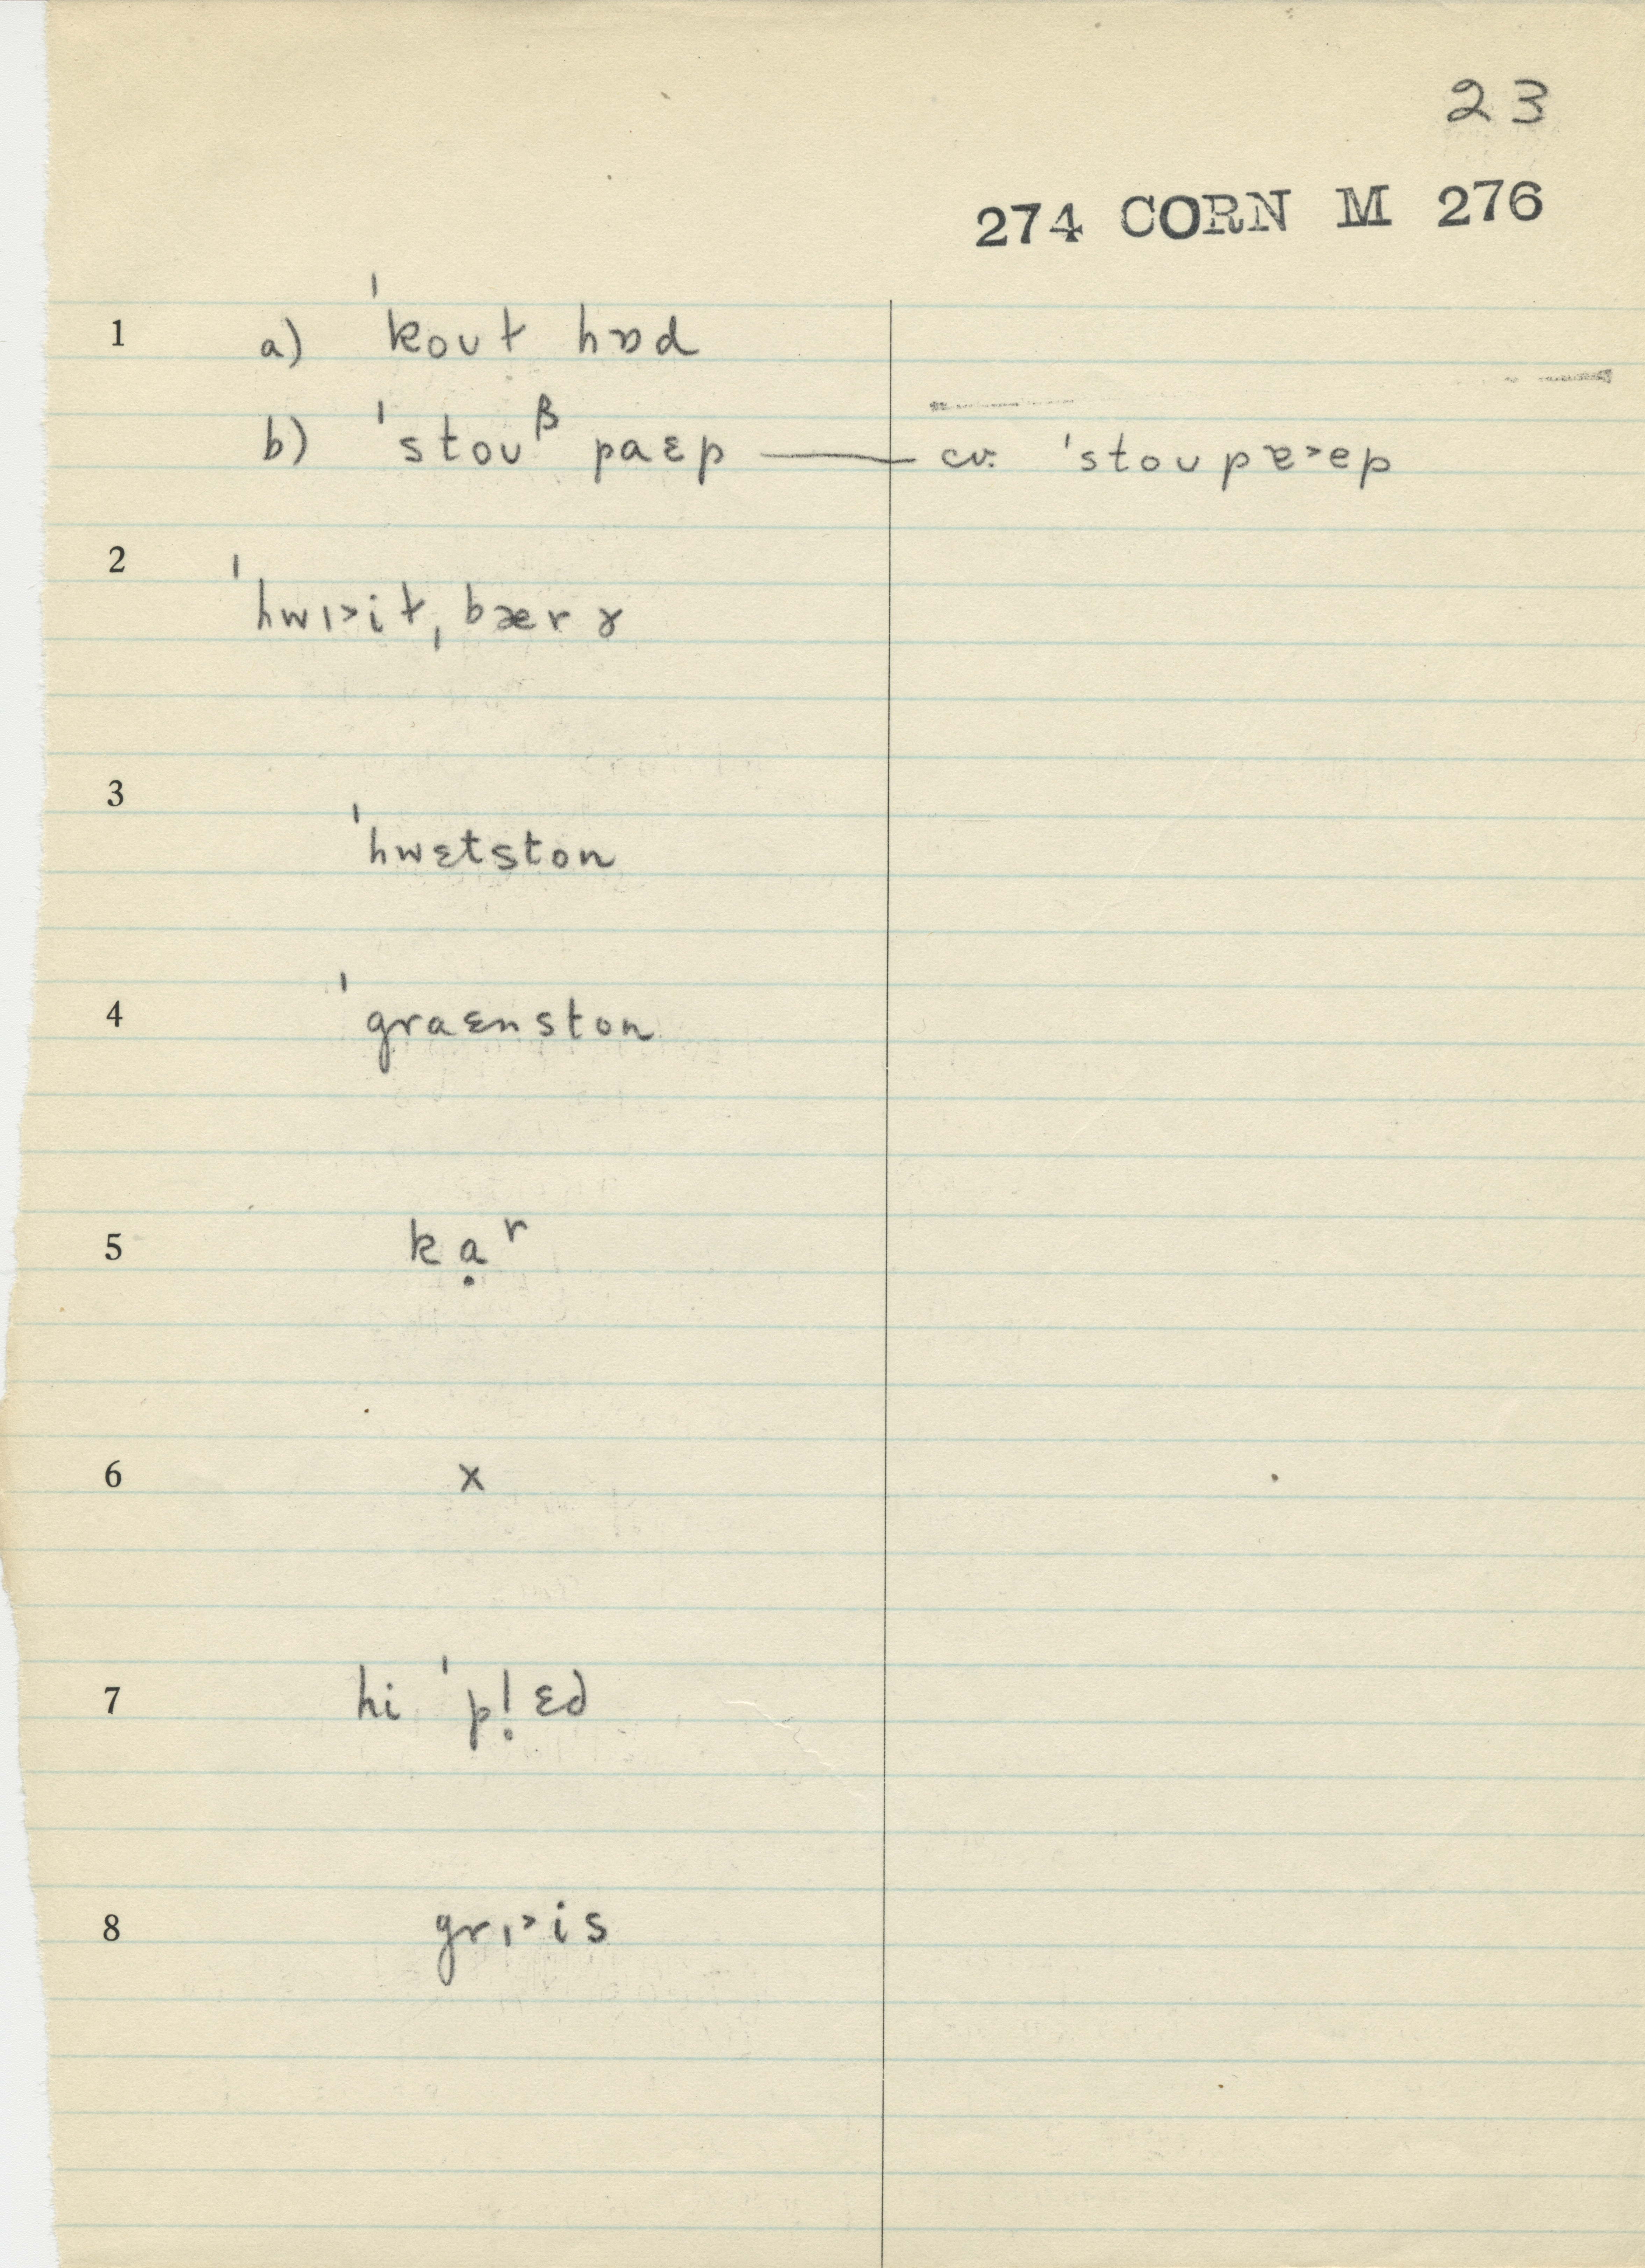 23
274 CORN M 276
1 a) ˈkoʊɫ hɒd
b) ˈstoʊᵝ paɛp — cv. ˈstoʊpɐ˃ep
2 ˈhwɪ˃iɫˌbærɤ
3 ˈhwɛtston
4 ˈgraɛnston
5 kạʳ
6 x
7 hi ˈpl̥ɛd
8 grɪ˃is